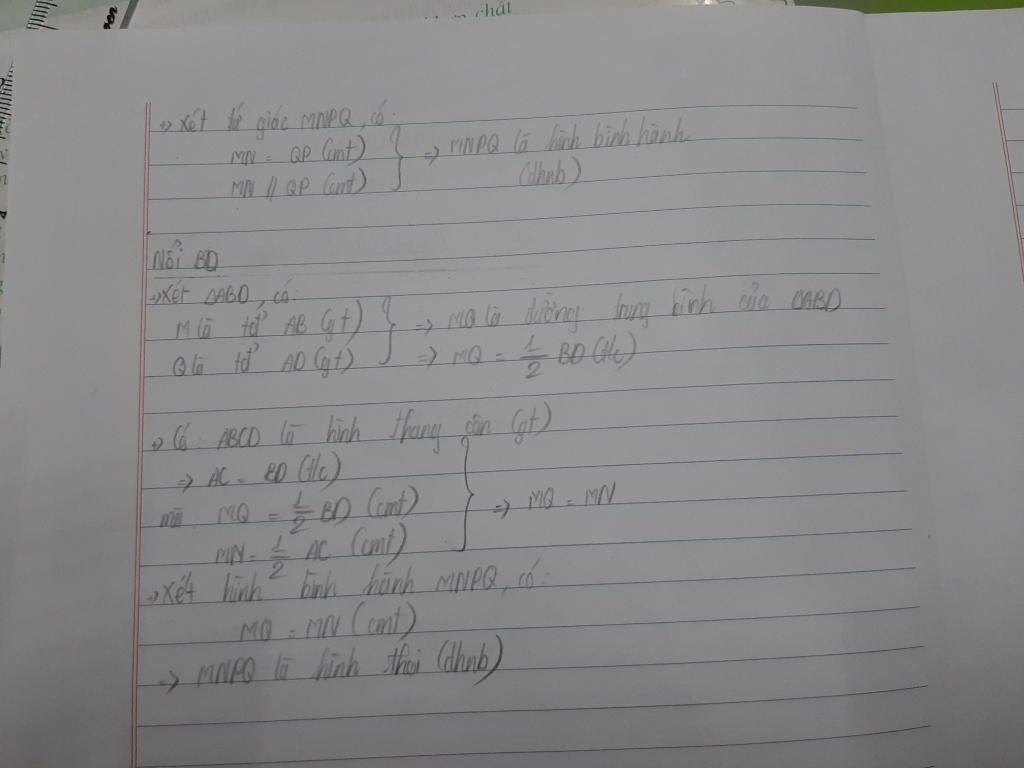 chất
→ Xét tứ giác MNPQ, có:
MN = QP (cmt)
MN // QP (cmt)
} => MNPQ là hình bình hành
(dhnb)
Nối BD
→ Xét △ABD, có:
M là tđ' AB (gt)
Q là tđ' AD (gt)
} => MQ là đường trung bình của △ABD
=> MQ = 1/2 BD (t/c)
→ Có ABCD là hình thang cân (gt)
=> AC = BD (t/c)
mà MQ = 1/2 BD (cmt)
MN = 1/2 AC (cmt)
} => MQ = MN
→ Xét hình bình hành MNPQ, có:
MQ = MN (cmt)
=> MNPQ là hình thoi (dhnb)